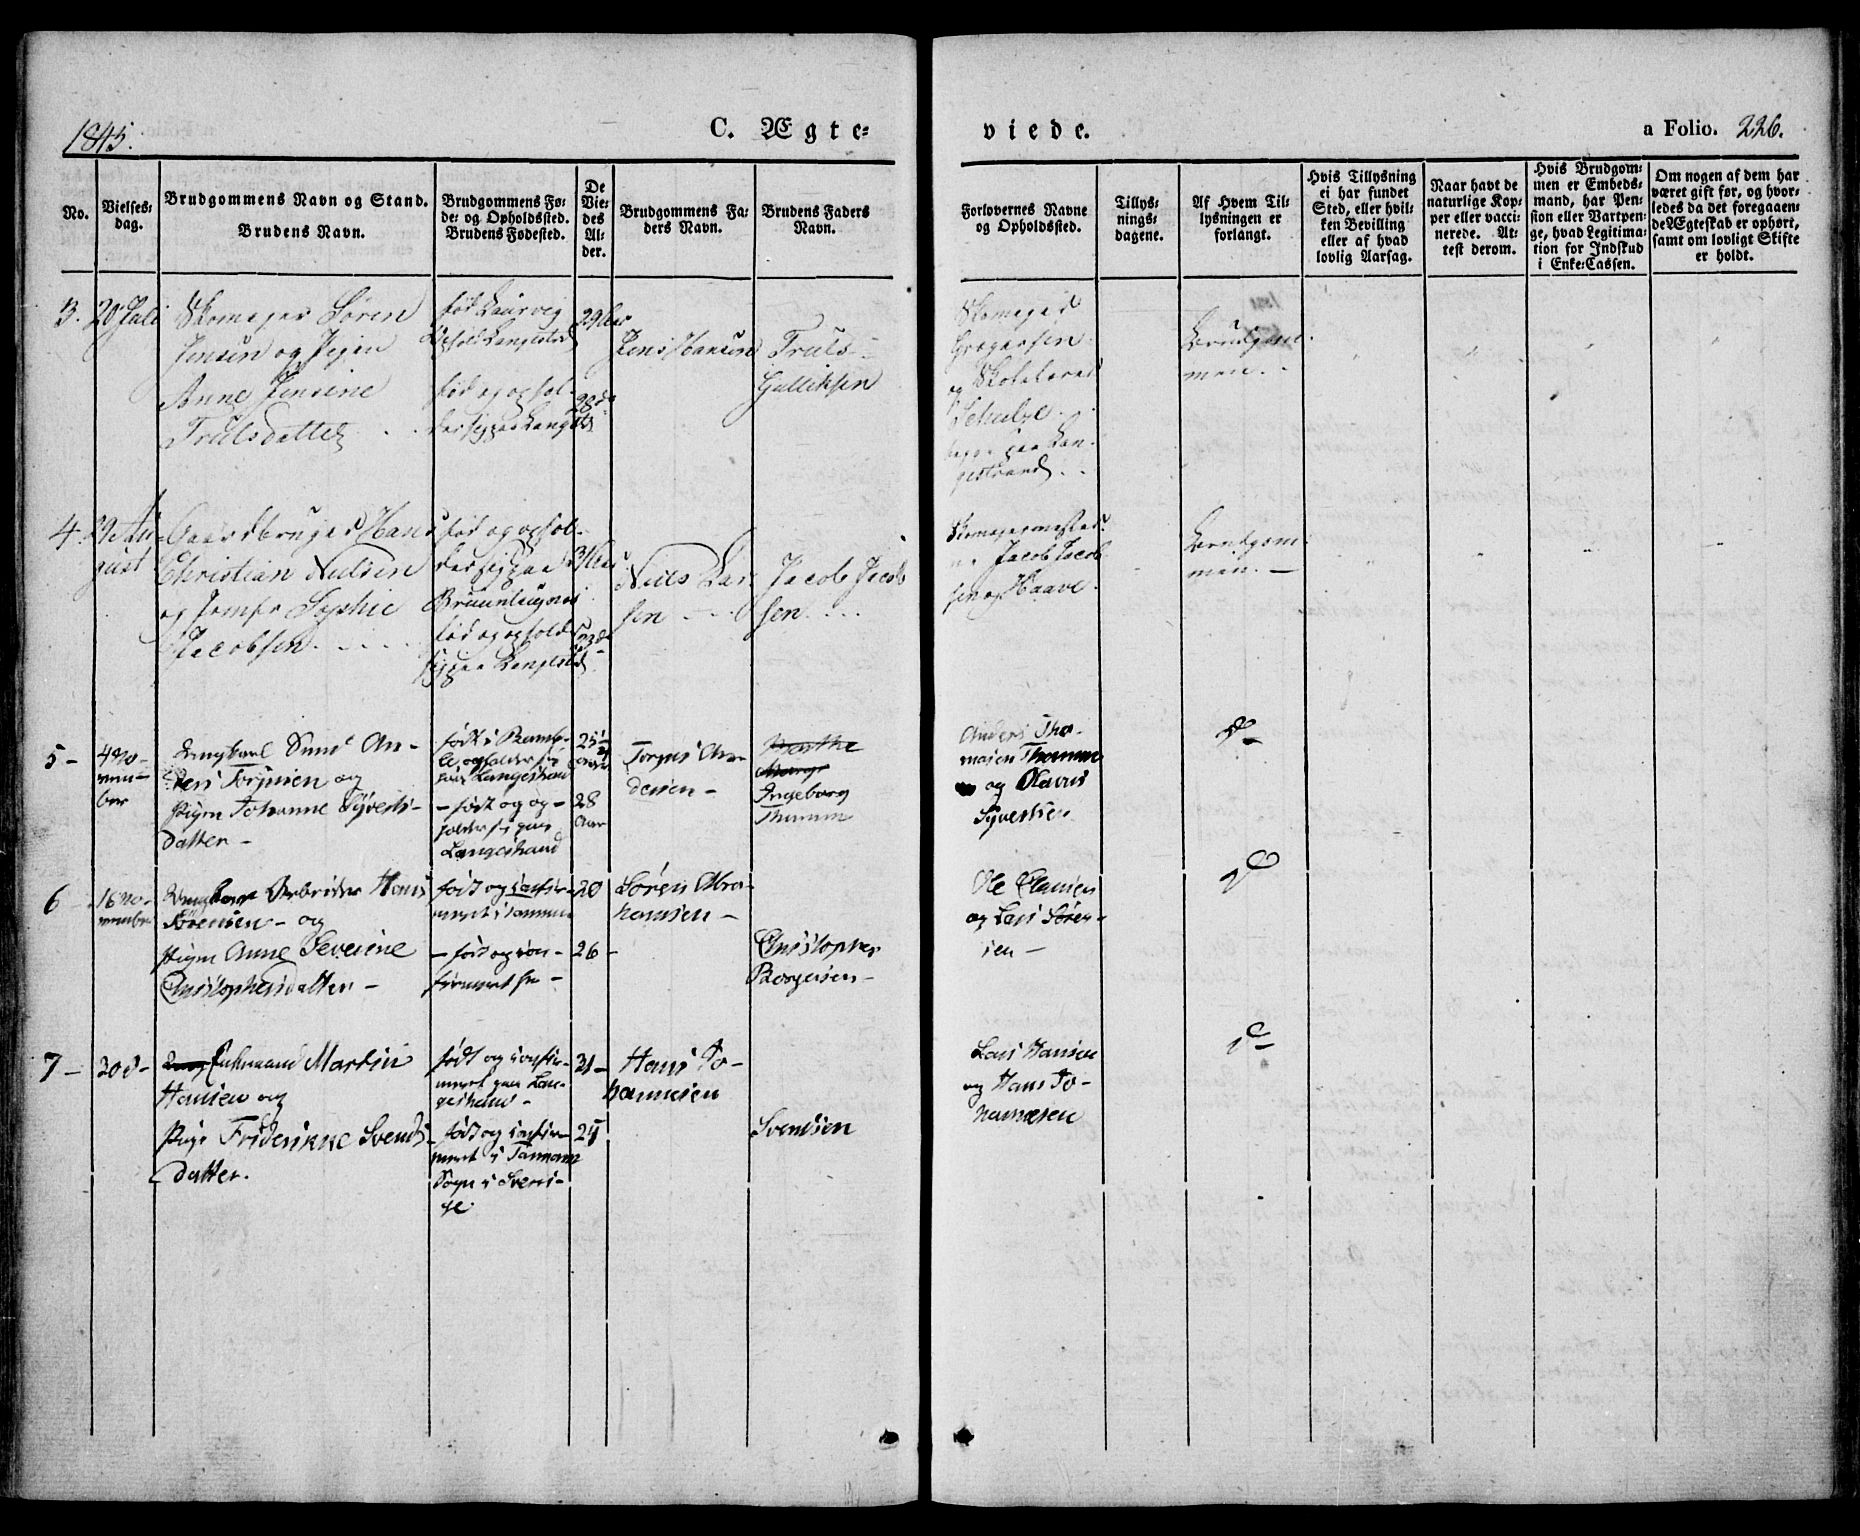 1845.
C. Ægte-
viede.
a Folio. 226.
No.
Vielses-
dag.
Brudgommens Navn og Stand.
Brudens Navn.
Brudgommens Fø-
de- og Opholdssted.
Brudens Fødested.
De
Vie-
des
Al-
der.
Brudgommens Fa-
ders Navn.
Brudens Faders
Navn.
Forlovernes Navne
og Opholdssted.
Tillys-
nings-
dagene.
Af Hvem Til-
lysningen er
forlangt.
Hvis Tillysning
ei har fundet
Sted, eller hvil-
ken Bevilling
eller af hvad
lovlig Aarsag.
Naar havt de
naturlige Kop-
per eller vacci-
nerede. At-
test derom.
Hvis Brudgom-
men er Embeds-
mand, har Pen-
sion eller Vartpen-
ge, hvad Legitima-
tion for Indskud
i Enke-Cassen.
Om nogen af dem har
været gift før, og hvor-
ledes da det foregaaen-
de Ægteskab er ophørt,
samt om lovligt Skifte
er holdt.
3. 20 Juli
Skomager Søren
Jensen og Pigen
Anne Jensine
Trulsdatter
født Laurvig
Jens Hansen
Truls
Gulliksen
Skomager
Gregersen
og
Schulze
gestrand
Brudgom-
men
4. 29 Au-
gust
Gaardbruger Hans
Christian Nielsen
og Jomfr Sophie
Jacobsen
født og ophol-
der sig paa
født og opholder
sig paa
Niels Lar-
sen
Jacob Jacob
sen
Jacob Jacob
sen og Haave
Brudgom-
men
5 - 4 No-
vem-
ber
Ungkarl An-
ders Torjusen og
Pigen Johanne Syverts-
datter -
født i Bamb-
le, opholder sig
paa Langestrand
- født og op-
holder sig paa
Langestrand
28
Aar
Torjus An-
dersen -
Ingeborg
Thomm
Anders Tho-
masen Thomm
og Olavus
Syvertsen
6 - 16 No-
vember
Ungkar Arbeider Hans
Sørensen - og
Pigen Anne Severine
Christophersdatter -
født og confir-
20
- født og con-
firmeret
26 -
Søren Abra-
hamsen -
Christopher
Borgersen -
Ole Clausen
og Lars Søren-
sen -
7 - 30 d -
Enkemand Martin
Hansen og
Pige Friderikke Svends-
datter.
født og confir-
meret paa Lan-
gestrand -
31 -
- født og confir-
meret i
Sogn i Sverri-
ge
Hans Jo-
hannesen
Svendsen
Lars Hansen
og Hans Jo-
hannesen